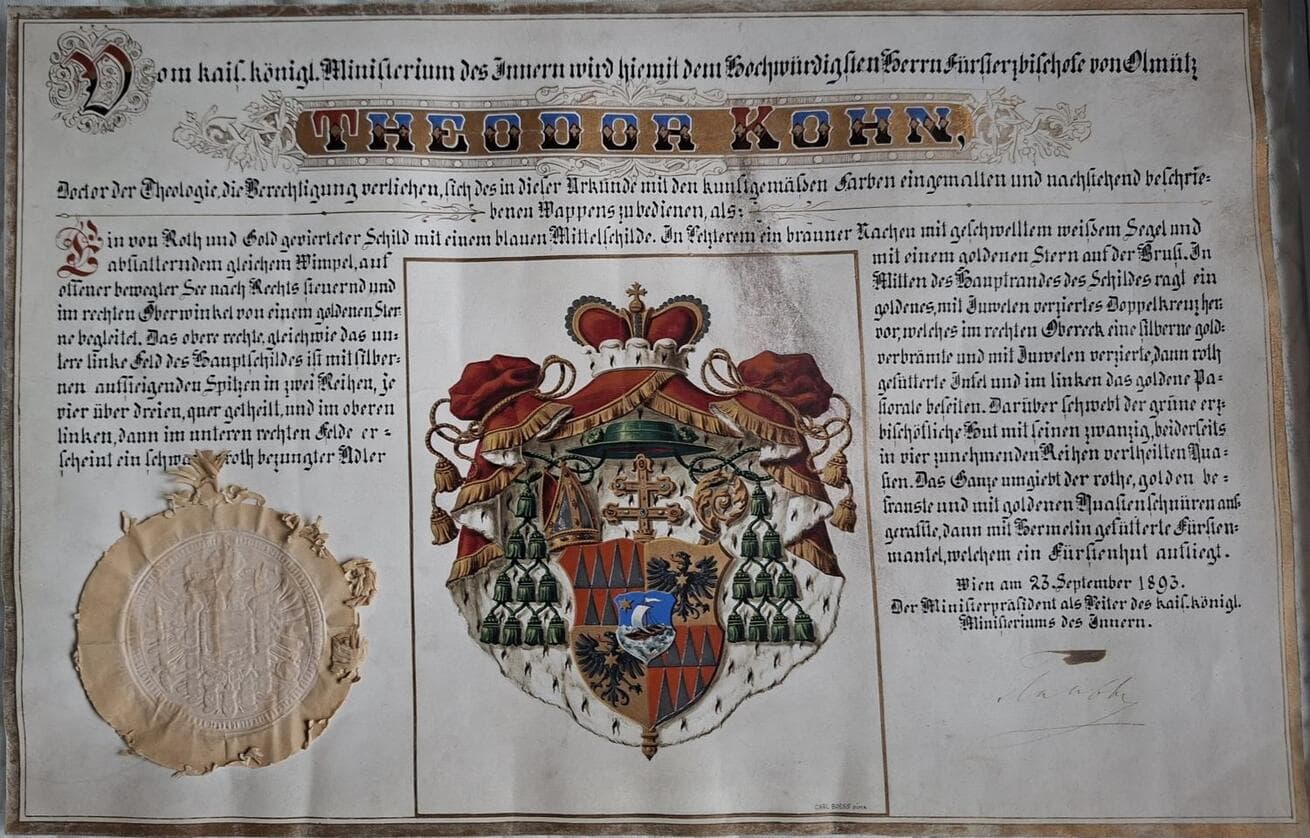 Vom kais. königl. Ministerium des Innern wird hiemit dem Hochwürdigsten Herrn Fürsterzbischofe von Olmütz
THEODOR KOHN,
Doctor der Theologie, die Berechtigung verliehen, sich des in dieser Urkunde mit den kunstgemäßen Farben eingemalten und nachstehend beschrie=
benen Wappens zu bedienen, als:
Ein von Roth und Gold gevierteter Schild mit einem blauen Mittelschilde. In Letzterem ein brauner Nachen mit geschwelltem weißem Segel und
abflatterndem gleichem Wimpel, auf
offener bewegter See nach Rechts steuernd und
im rechten Oberwinkel von einem goldenen Ster=
ne begleitet. Das obere rechte, gleichwie das un=
tere linke Feld des Hauptschildes ist mit silber=
nen aufsteigenden Spitzen in zwei Reihen, je
vier über dreien, quer getheilt, und im oberen
linken, dann im unteren rechten Felde er=
scheint ein roth bezungter Adler
mit einem goldenen Stern auf der Brust. In
Mitten des Hauptrandes des Schildes ragt ein
goldenes, mit Juwelen verziertes Doppelkreuz her=
vor, welches im rechten Obereck eine silberne gold=
verbrämte und mit Juwelen verzierte, dann roth
gefütterte Inful und im linken das goldene Pa=
storale beseiten. Darüber schwebt der grüne erz=
bischöfliche Hut mit seinen zwanzig, beiderseits
in vier zunehmenden Reihen vertheilten Qua=
sten. Das Ganze umgiebt der rothe, golden be=
franste und mit goldenen Quastenschnüren auf=
geraffte, dann mit Hermelin gefütterte Fürsten=
mantel, welchem ein Fürstenhut aufliegt.
Wien am 23. September 1893.
Der Ministerpräsident als Leiter des kais. königl.
Ministeriums des Innern.
CARL